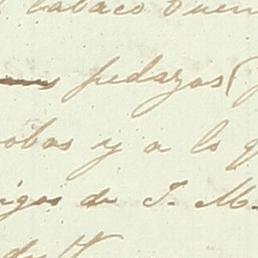 tabaco buen
pedazos (
obas y a lo q
igos de J. M.